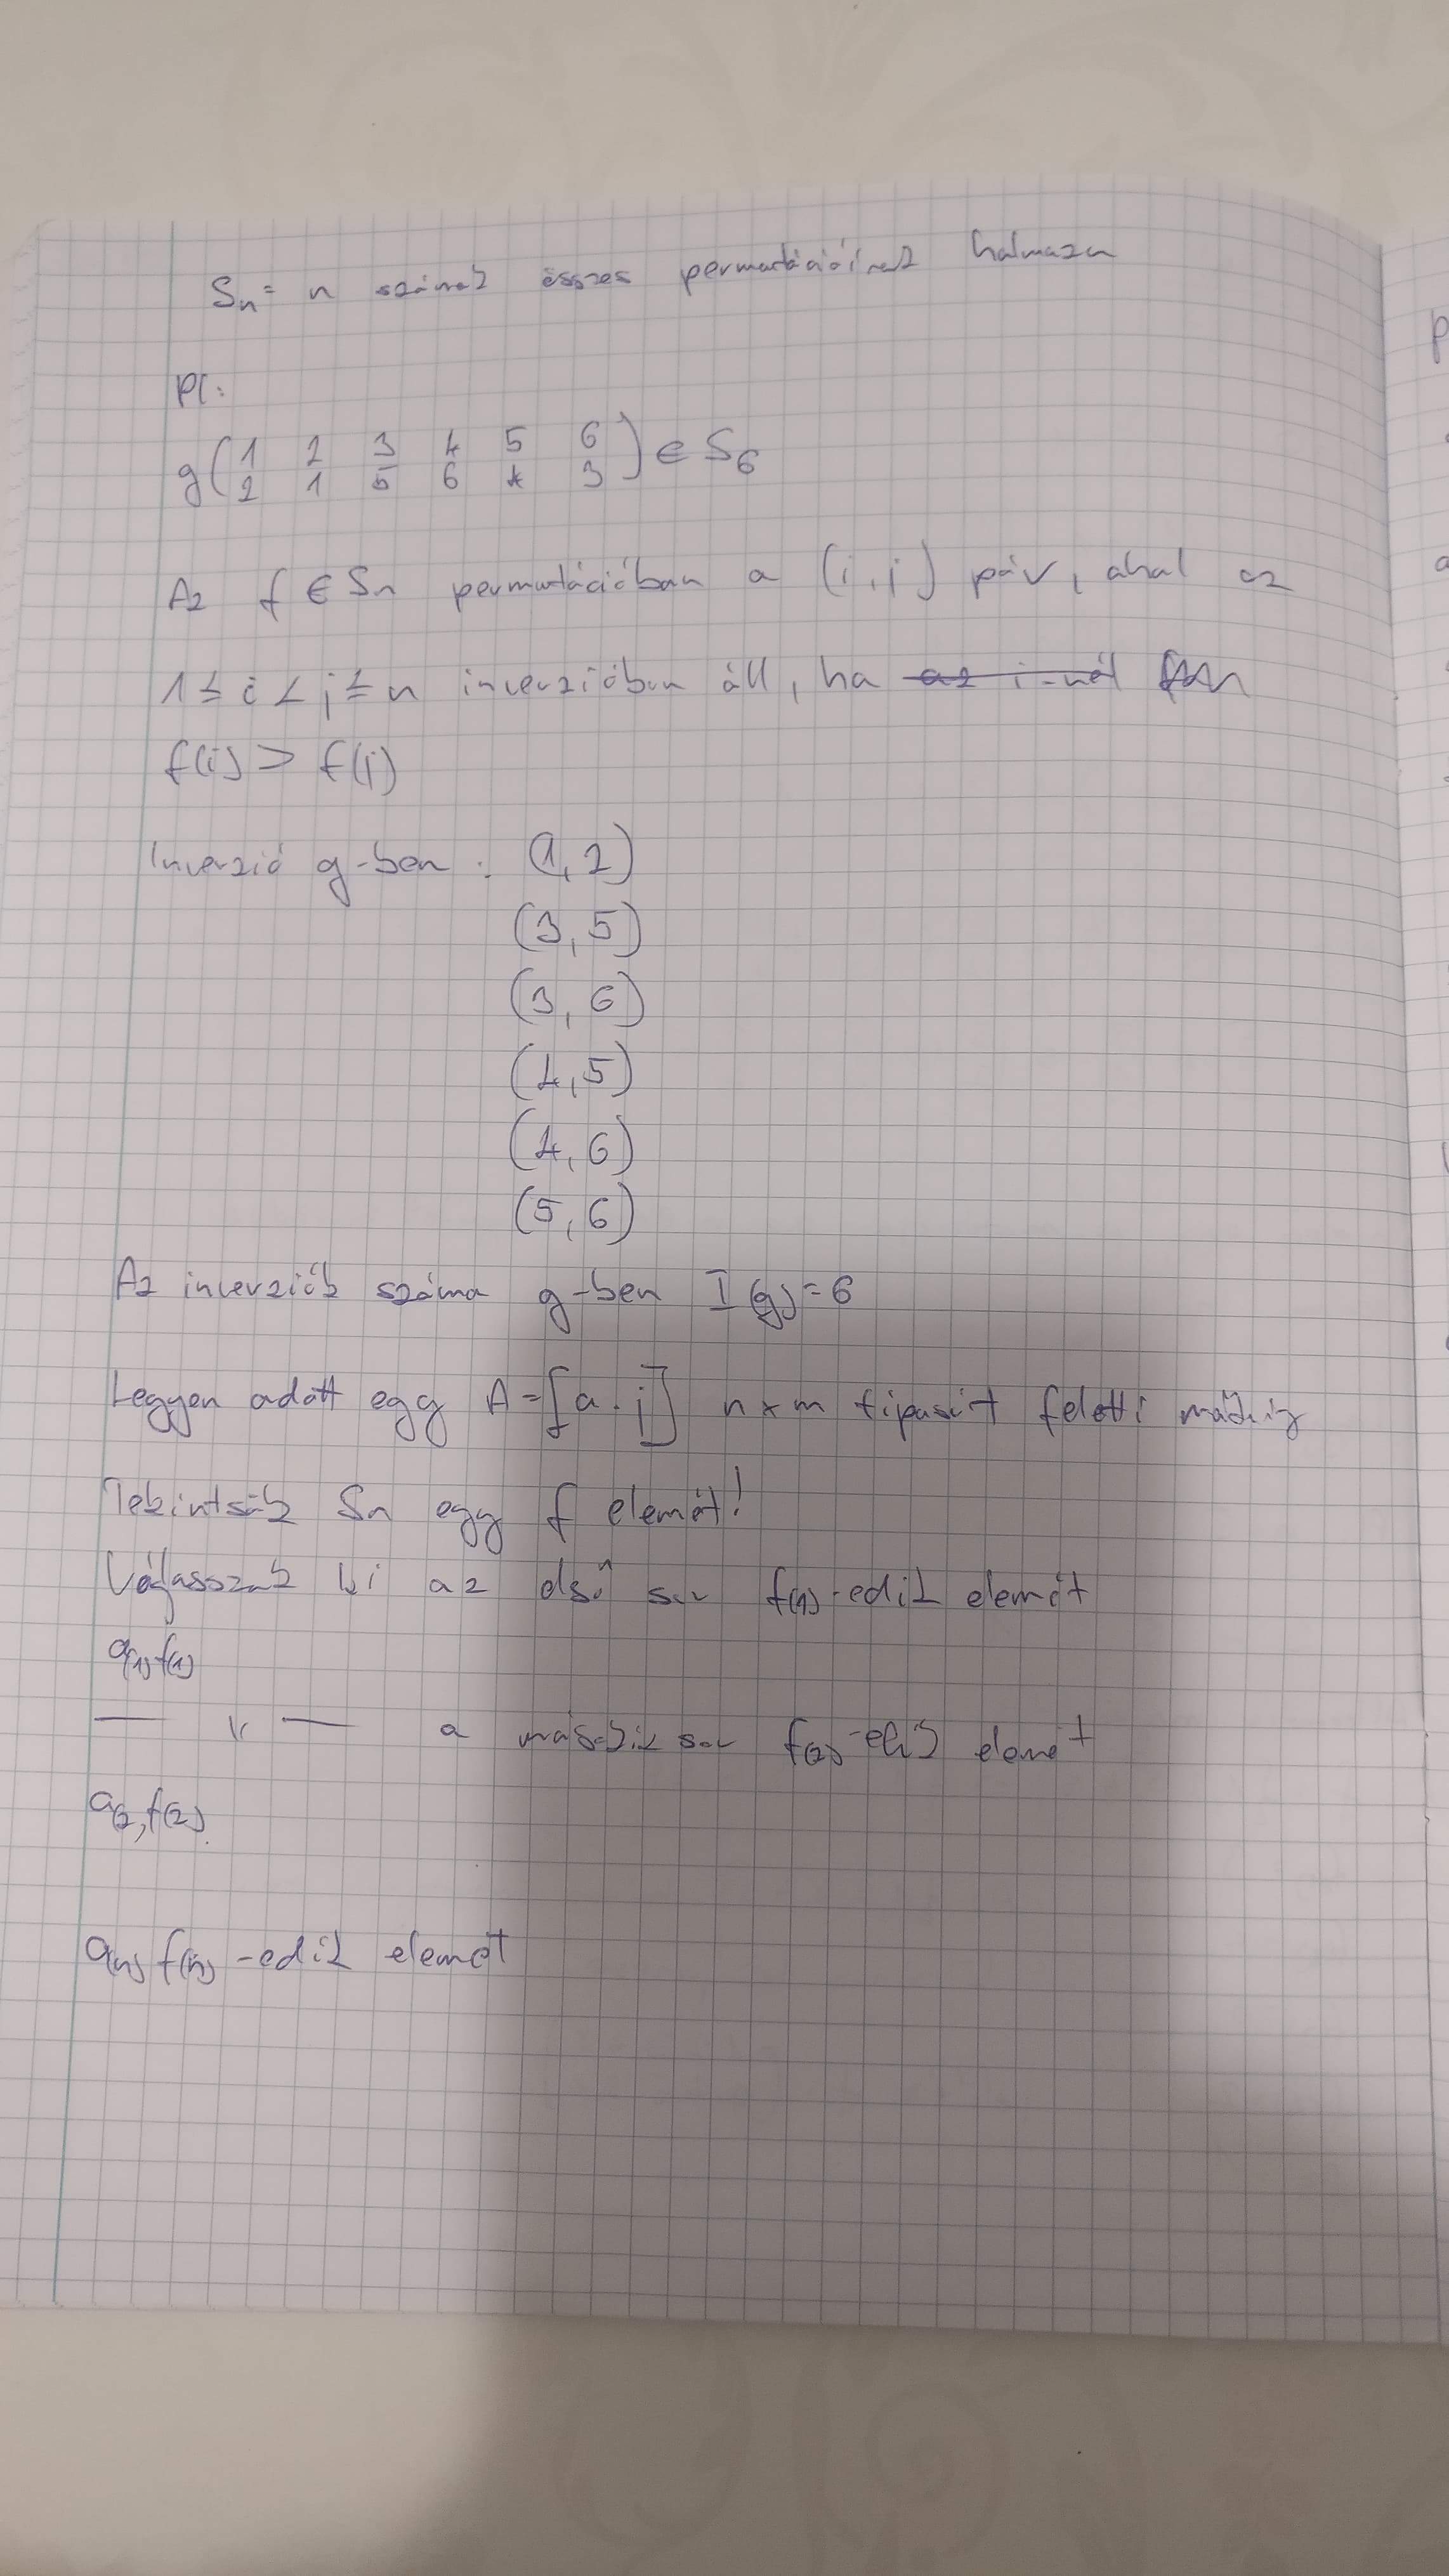 Sn = n számok összes permutációinak halmaza
Pl:
g(1 2 3 4 5 6
2 1 5 6 4 3) ∈ S6
Az f ∈ Sn permutációban a (i, j) pár, ahol az
1 ≤ i < j ≤ n inverzióban áll, ha az i-nél
f(i) > f(j)
Inverzió g-ben : (1, 2)
(3, 5)
(3, 6)
(4, 5)
(4, 6)
(5, 6)
Az inverziók száma g-ben I(g) = 6
Legyen adott egy A = [a i j] n x m típusú t feletti mátrix
Tekintsük Sn egy f elemét!
Válasszuk ki az első sor f(1)-edik elemét
a(1) f(1)
— 11 — a második sor f(2)-edik elemét
a2, f(2)
a(n) f(n) -edik elemét